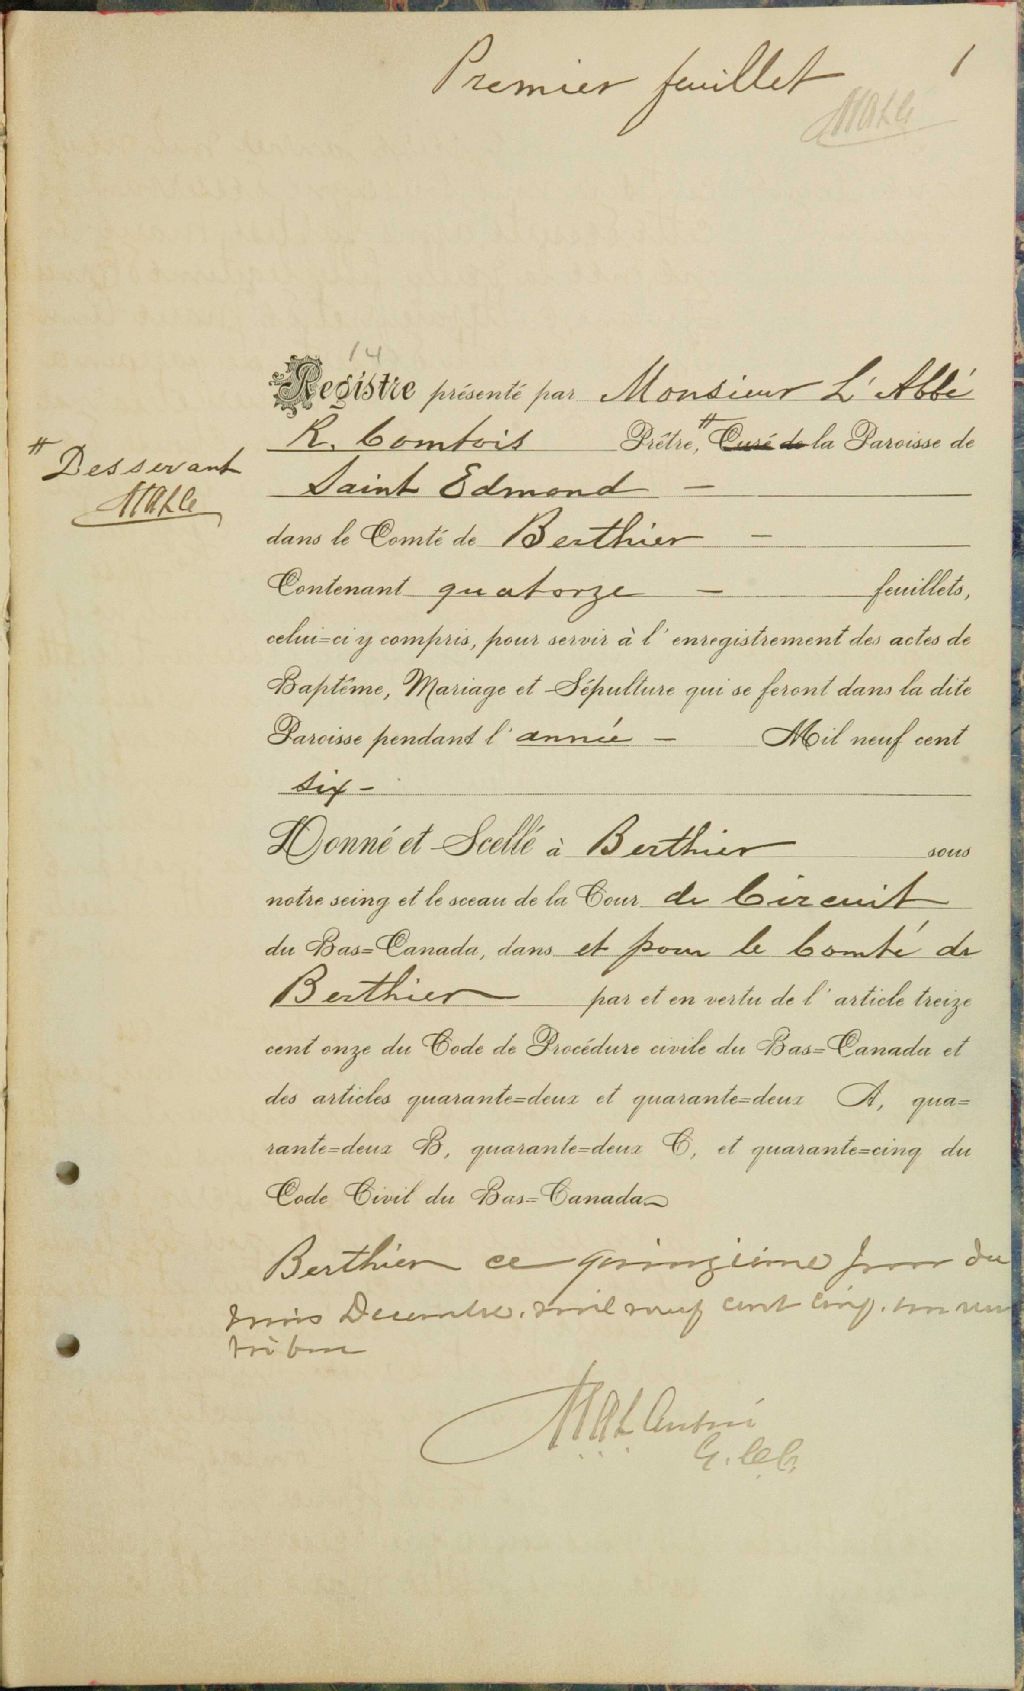 Premier feuillet
1
14
Registre présenté par Monsieur L'Abbé
R. Comtois Prêtre, # Curé de la Paroisse de
# Desservant
Saint Edmond —
dans le Comté de Berthier —
Contenant quatorze — feuillets,
celui=ci y compris, pour servir à l'enregistrement des actes de
Baptême, Mariage et Sépulture qui se feront dans la dite
Paroisse pendant l'année — Mil neuf cent
six -
Donné et Scellé à Berthier sous
notre seing et le sceau de la Cour de Circuit
du Bas=Canada, dans et pour le Comté de
Berthier par et en vertu de l'article treize
cent onze du Code de Procédure civile du Bas=Canada et
des articles quarante=deux et quarante=deux A, qua=
rante=deux B, quarante=deux C, et quarante=cinq du
Code Civil du Bas=Canada
Berthier ce quinzième jour du
mois Decembre. mil neuf cent cinq.